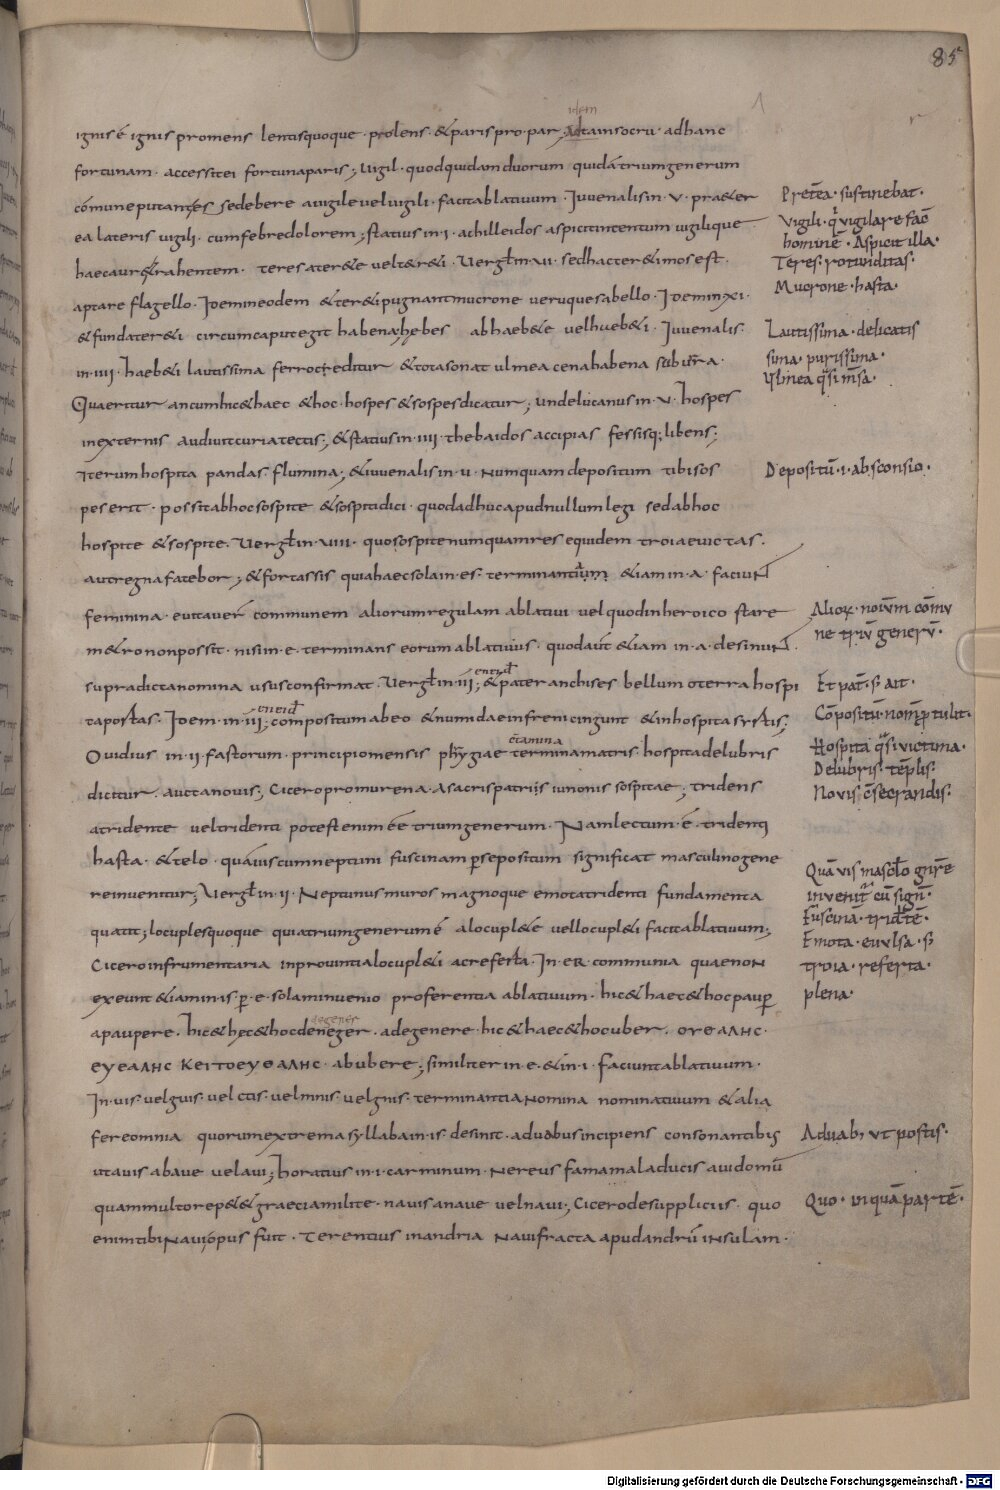 85
idem
ignis ē ignis promens lentisquoque prolens &paris pro par Idem insocru adhanc
fortunam accessitei fortunaparis; Vigil quodquidamduorum quidātriumgenerum
cōmuneputantes sedebere avigilevelvigili facitablativum Iuvenalisin V pra&er
ea lateris vigili cumfebredolorem; statius in I achilleidos aspicitintentum vigilique
haec trahentem teres ater&e velter&i Vergł in VII sedhacter&imosest
aptare flagello Idemineodem &ter&ipugnantmucrone veruquesabello IdeminXI
&fundater&i circumcaputegit habena hebes abhaeb&e velhueb&i Iuvenalis
in IIII haeb&i lautissima ferrocreditur &totasonat ulmea cenahabena
Quaeritur ancumhic&haec &hoc hospes &sospesdicatur; undelucanusin V hospes
inexternis audiuitcuriatectis; &statiusin IIII thebaidos accipias fessisq; libens;
Iterumhospita pandas flumina; &iuvenalisin V Numquamdepositum tibisos
peserit possitabhocsospite &sospitidici quodadhucapudnullumlegi sedabhoc
hospite &sospite Vergł in VIII quosospitenumquamres equidem troiaevictas
autregnafatebor; &fortassis quiahaecsolain es terminantium &iam in A faciuN
feminina evitaveŕ communem aliorumregulam ablativi velquodinheroico stare
m&rononpossit nisiin e terminans eorumablativus quodaūt &iam in a desinuN
supradictanomina ususconfirmat Vergł in III &pateranchises bellum oterrahospi
taportas Idem in IIII compositumabeo &numidaeinfrenicingunt &inhospitasyrtis;
Ovidius in II fastorum principiomensis phrygiae terminamatris hospitadelubris
dicitur auctanovis; Ciceropromurena Asacrispatriis iunonis sospitae; tridens
atridente veltridenti potestenim ēē triumgenerum Namlectum ē tridenti
hasta &telo quāviscumneptuni fuscinam persepositum significat masculinogene
reinvenitur; Vergł in II Neptunusmuros magnoque emotatridenti fundamenta
quatit; locuplesquoque quiatriumgenerum ē alocupl&e vellocupl&i facitablativum;
Ciceroinfrumentaria inprovintialocupl&i acreferta In ER communia quaenoN
exeunt &iaminis p̄ e solaminvenio proferentia ablativum hic&haec&hocpaup
apaupere hic&hęc&hocdeneger adegenere hic&haec&hocuber ΟΥΘΑΛΗC
ΕΥΘΑΛΗC ΚΕΙΤΟΕΥΘΑΛΗC abubere; similiter in e &in I faciuntablativum
In vis velguis vel ctis velmnis velgnis terminantianomina nominativum &alia
fereomnia quorumextremasyllabain is desinit aduabusincipiens consonantibus
utavis abave velavi; horatius in I carminum Nereus famamaladucis avidomū
quammultorep&&graeciamilite navis anave velnavi; Cicerodesuppliciis quo
enimtibinaviopus fuit Terentius inandria Navifracta apudandrū insulam
Pretēa sustinebat
Vigili q̄ vigilare
hominē Aspicit illa
Teres rotunditas
Mucrone hasta
Lautissima delicatis
sima purissima
Ylmea
Depositū i absconsio
Alior̄ noīum cōmu
ne triū generū
Et pat̄ s̄ ait
Cōpositū
Hospita victima
Delubris tēplis
Novis cōsecrandis
Quāvis mascłō gnr̄e
invenit̄ cū sign̄
Fuscina tridēte
Emota evulsa s̄
troia referta
plena
Aduab; ut postis
Quo inquāpartē
Digitalisierung gefördert durch die Deutsche Forschungsgemeinschaft - DFG